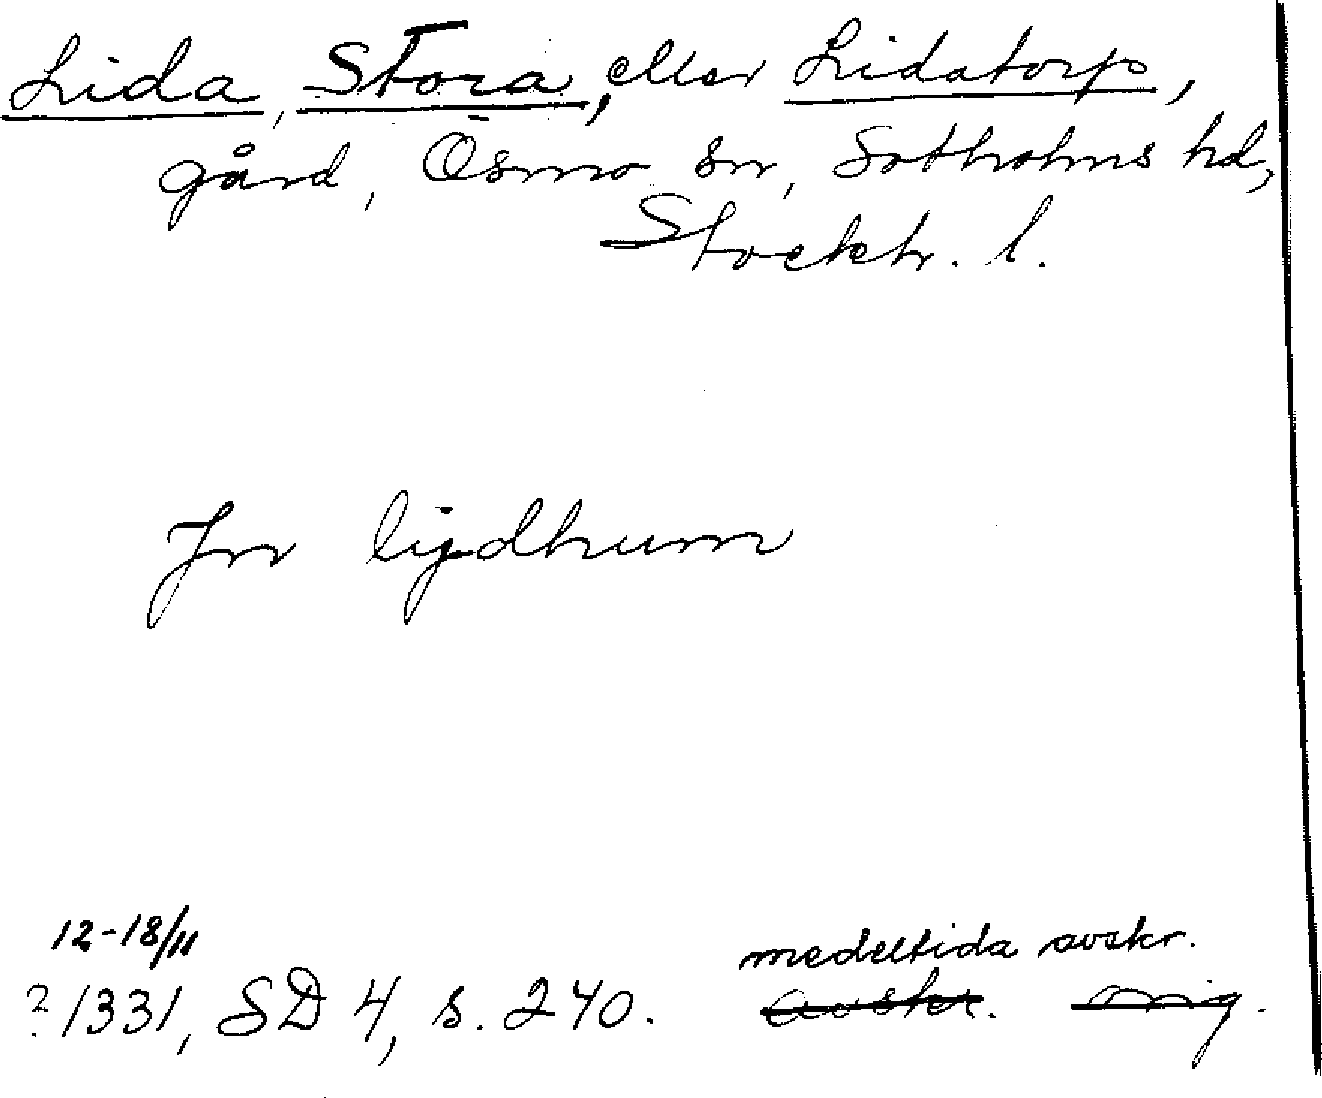 Lida, Stora, eller Lidatorp,
gård, Ösmo sn, Sotholms hd,
Stockh. l.
Jn lijdhum
12-18/11
medeltida avskr.
? 1331, SD 4, s. 240. avskr. orig.